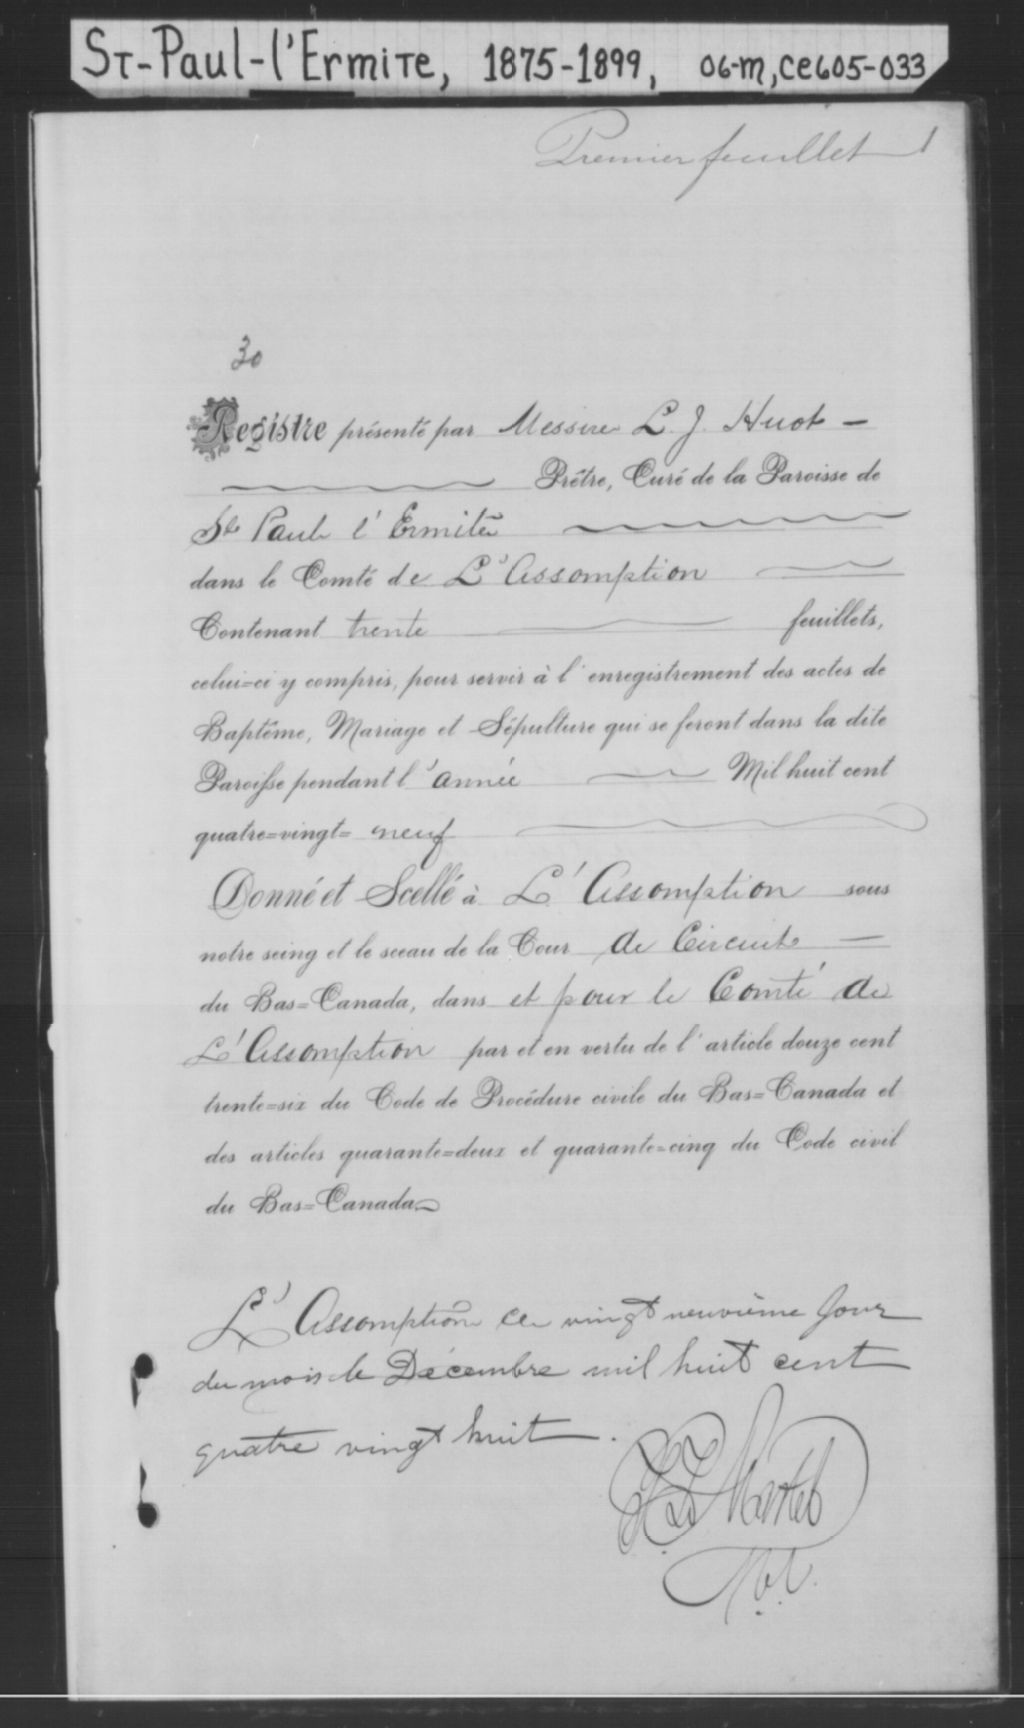 St-Paul-l'Ermite, 1875-1899, 06-M, CE605-033
Premier feuillet 1
30
Registre présenté par Messire L. J. Huot –
Prêtre, Curé de la Paroisse de
St Paul l'Ermite
dans le Comté de L'Assomption
Contenant trente feuillets,
celui=ci y compris, pour servir à l'enregistrement des actes de
Baptême, Mariage et Sépulture qui se feront dans la dite
Paroisse pendant l'année Mil huit cent
quatre=vingt= neuf
Donné et Scellé à L'Assomption sous
notre seing et le sceau de la Cour de Circuit –
du Bas=Canada, dans et pour le Comté de
L'Assomption par et en vertu de l'article douze cent
trente=six du Code de Procédure civile du Bas=Canada et
des articles quarante=deux et quarante=cinq du Code civil
du Bas=Canada
L'Assomption ce vingt neuvième Jour
du mois de Décembre mil huit cent
quatre vingt huit.
Martel